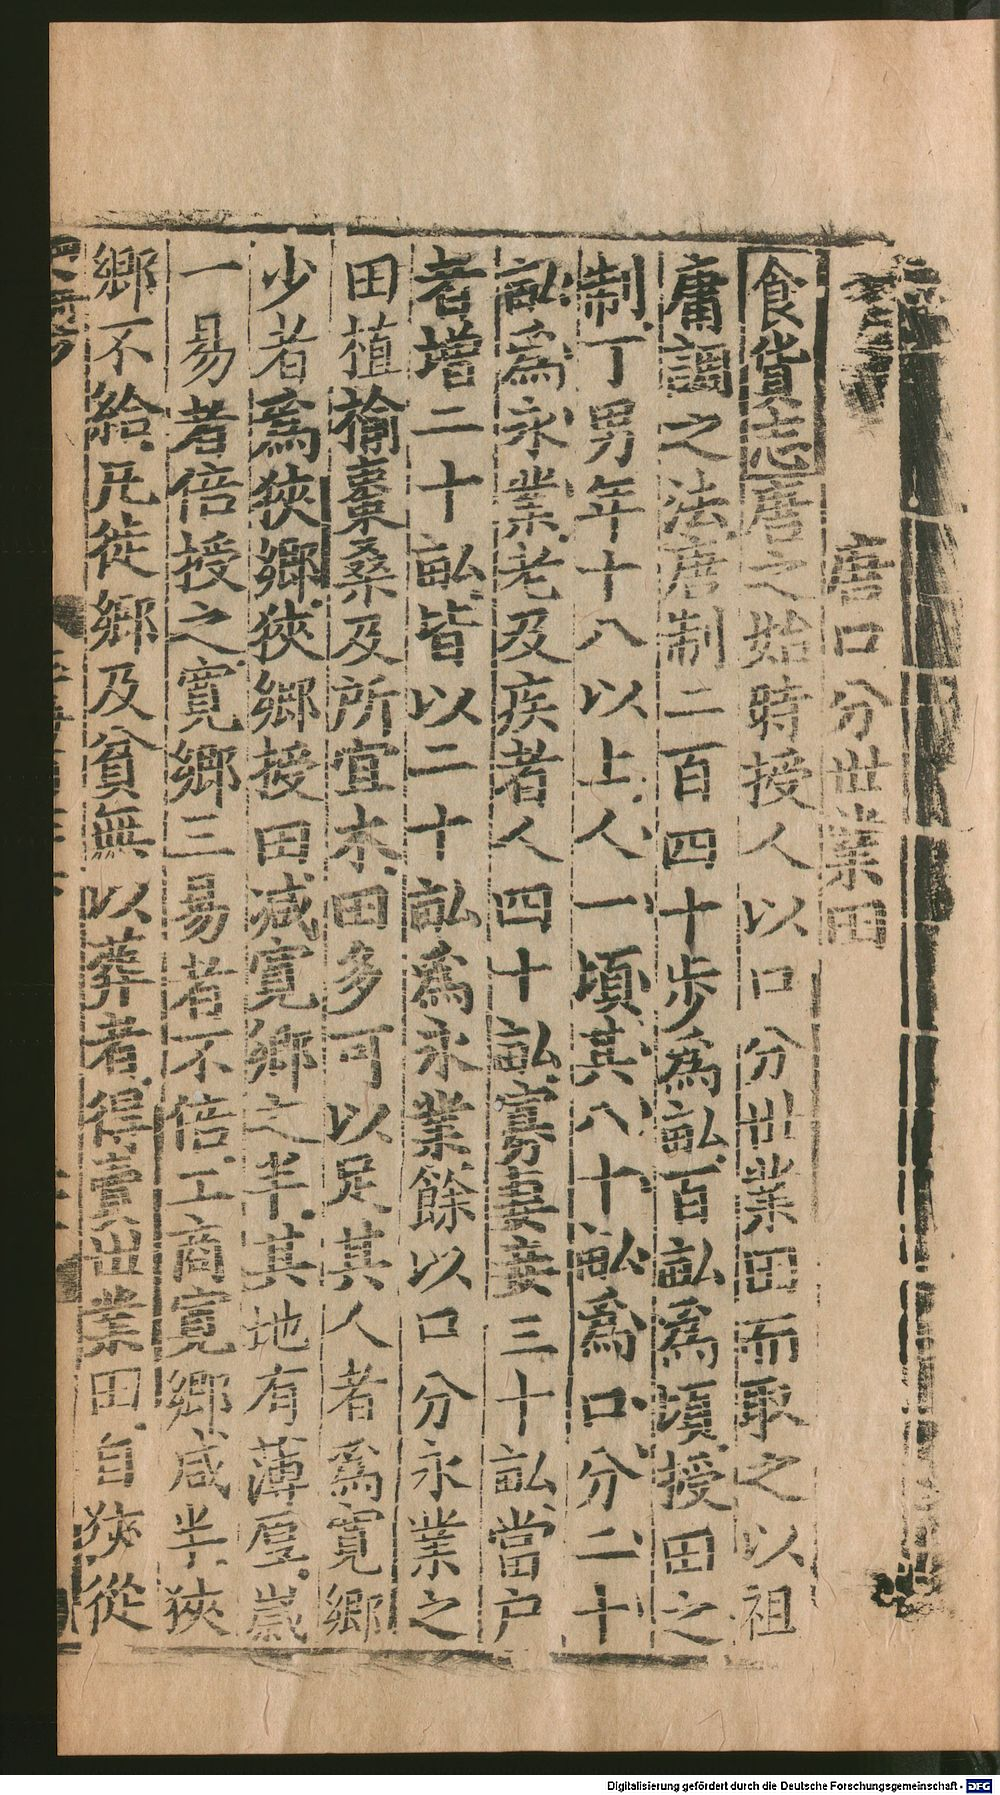 唐口分世業田
食貨志唐之始時授人以口分世業田而取之以祖
庸調之法唐制二百四十步為畝百畝為頃授田之
制丁男年十八以上人一頃其八十畝為口分二十
畝為永業老及疾者人四十畝寡妻妾三十畝當户
者增二十畝皆以二十畝為永業餘以口分永業之
田植榆棗桑及所宜木田多可以足其人者為寬鄉
少者為狹鄉狹鄉授田减寬鄉之半其地有薄厚歲
一易者倍授之寬鄉三易者不倍工商寬鄉咸半狹
鄉不給凡徙鄉及貧無以葬者得賣世業田自狹從
Digitalisierung gefördert durch die Deutsche Forschungsgemeinschaft - DFG